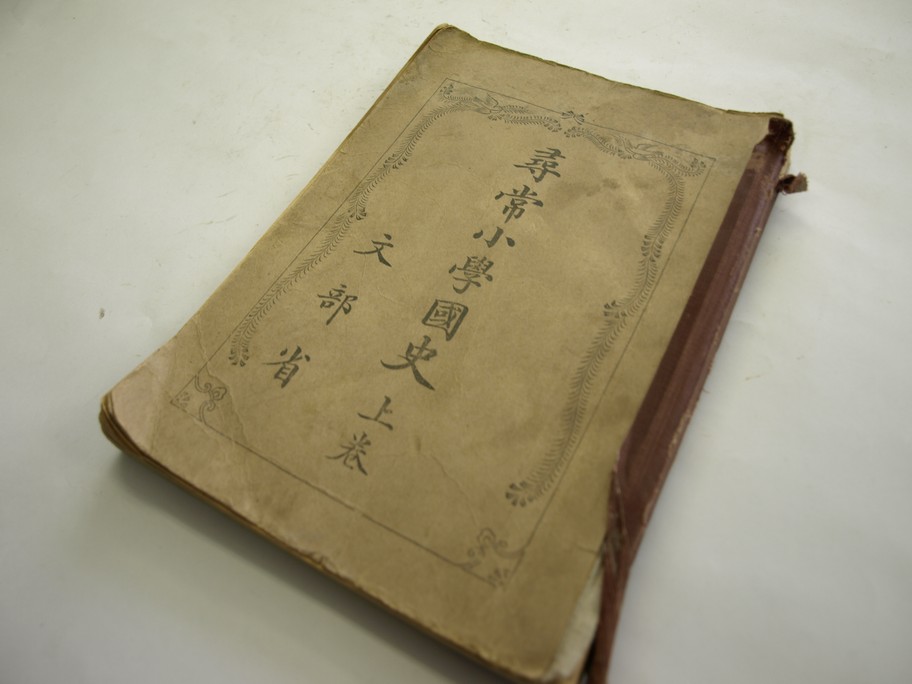 尋常小學國史上卷
文部省